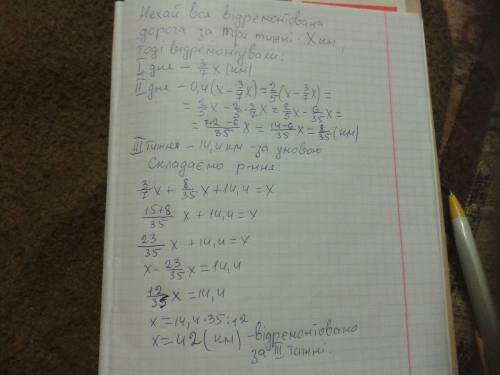 Нехай вся відремонтована
дорога за три тижні - X км,
тоді відремонтували:
I дне - 3/7 x (км)
II дне - 0,4(x - 3/7 x) = 2/5 (x - 3/7 x) =
= 2/5 x - 2/5 · 3/7 x = 2/5 x - 6/35 x =
= 7·2-6/35 x = 14-6/35 x = 8/35 (км)
III тижня - 14,4 км - за умовою
Складаємо р-ння:
3/7 x + 8/35 x + 14,4 = x
15+8/35 x + 14,4 = x
23/35 x + 14,4 = x
x - 23/35 x = 14,4
12/35 x = 14,4
x = 14,4 · 35 : 12
x = 42 (км) - відремонтовано
за III тижні.